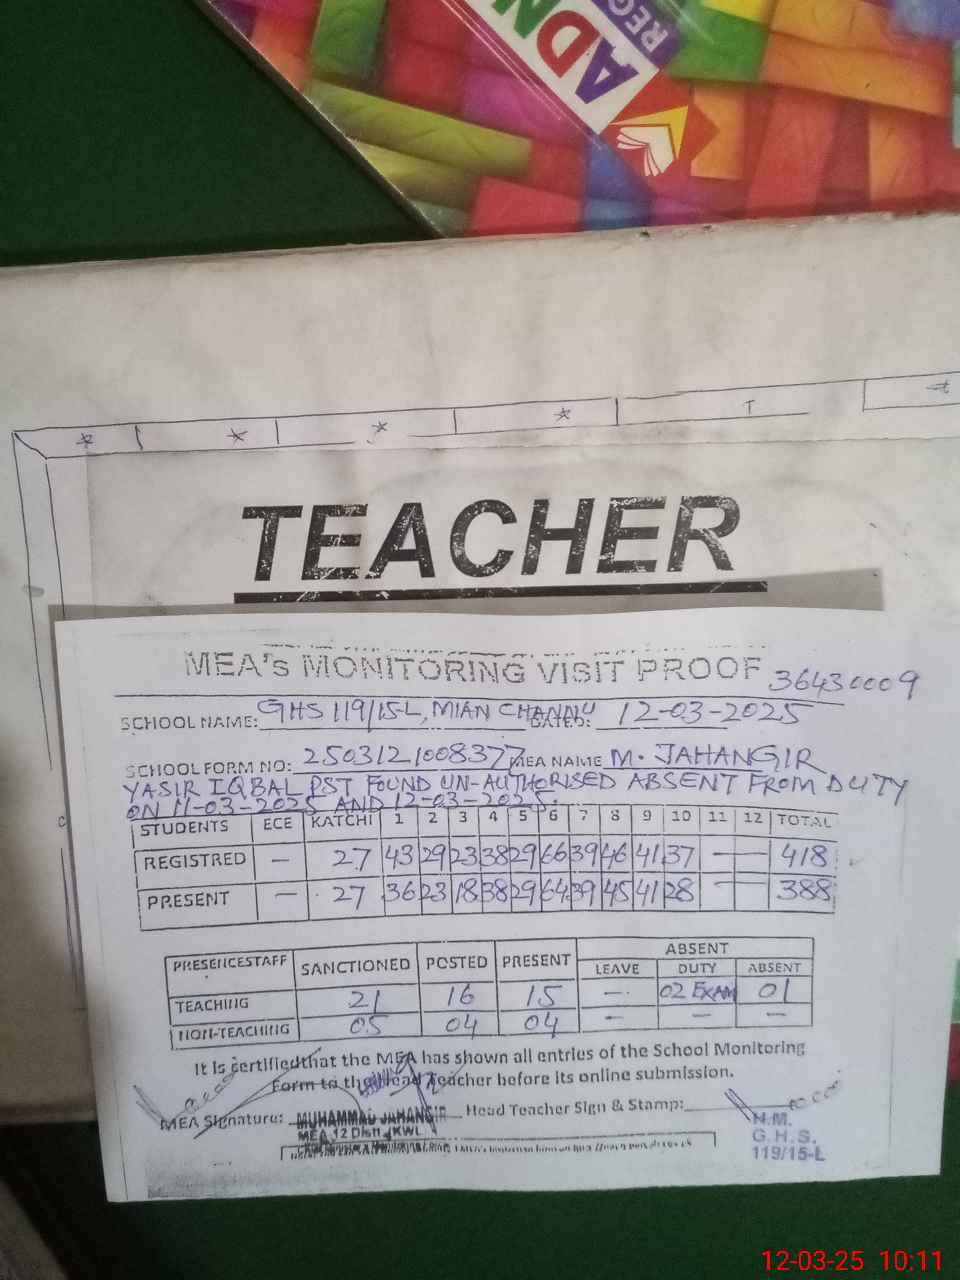 ADN
REG
TEACHER
MEA's MONITORING VISIT PROOF 36430009
SCHOOL NAME: GHS 119/15-L, MIAN CHANNU DATED: 12-03-2025
SCHOOL FORM NO: 2503121008377 MEA NAME M. JAHANGIR
YASIR IQBAL PST FOUND UN-AUTHORISED ABSENT FROM DUTY
ON 11-03-2025 AND 12-03-2025.
STUDENTS ECE KATCHI 1 2 3 4 5 6 7 8 9 10 11 12 TOTAL
REGISTRED — 27 43 29 23 38 29 66 39 46 41 37 — 418
PRESENT — 27 36 23 18 38 29 64 39 45 41 28 — 388
PRESENCESTAFF SANCTIONED POSTED PRESENT ABSENT
LEAVE DUTY ABSENT
TEACHING 21 16 15 — 02 EXAM 01
NON-TEACHING 05 04 04 — — —
It is certifiedthat the MEA has shown all entries of the School Monitoring
Form to the Head Teacher before its online submission.
MEA Signature: MUHAMMAD JAHANGIR Head Teacher Sign & Stamp:
MEA 12 Distt. KWL
H.M.
G.H.S.
119/15-L
12-03-25 10:11